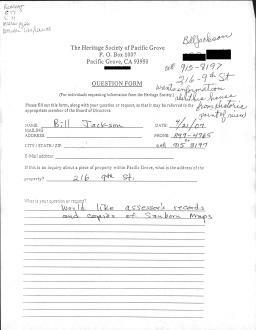 Bill Jackson
The Heritage Society of Pacific Grove
P. O. Box 1007
Pacific Grove, CA 93950
cell 915-8197
216-9th St
QUESTION FORM
(For individuals requesting information from the Heritage Society.)
wants information
about this house
from historic
point of view
Please fill out this form, along with your question or request, so that it may be referred to the
appropriate member of the Board of Directors.
NAME Bill Jackson DATE 9/21/07
MAILING
ADDRESS PHONE
CITY / STATE / ZIP cell 915 8197
E-Mail address
If this is an inquiry about a piece of property within Pacific Grove, what is the address of the
property? 216 9th St.
What is your question or request?
Would like assessor's records
and copies of Sanborn Maps